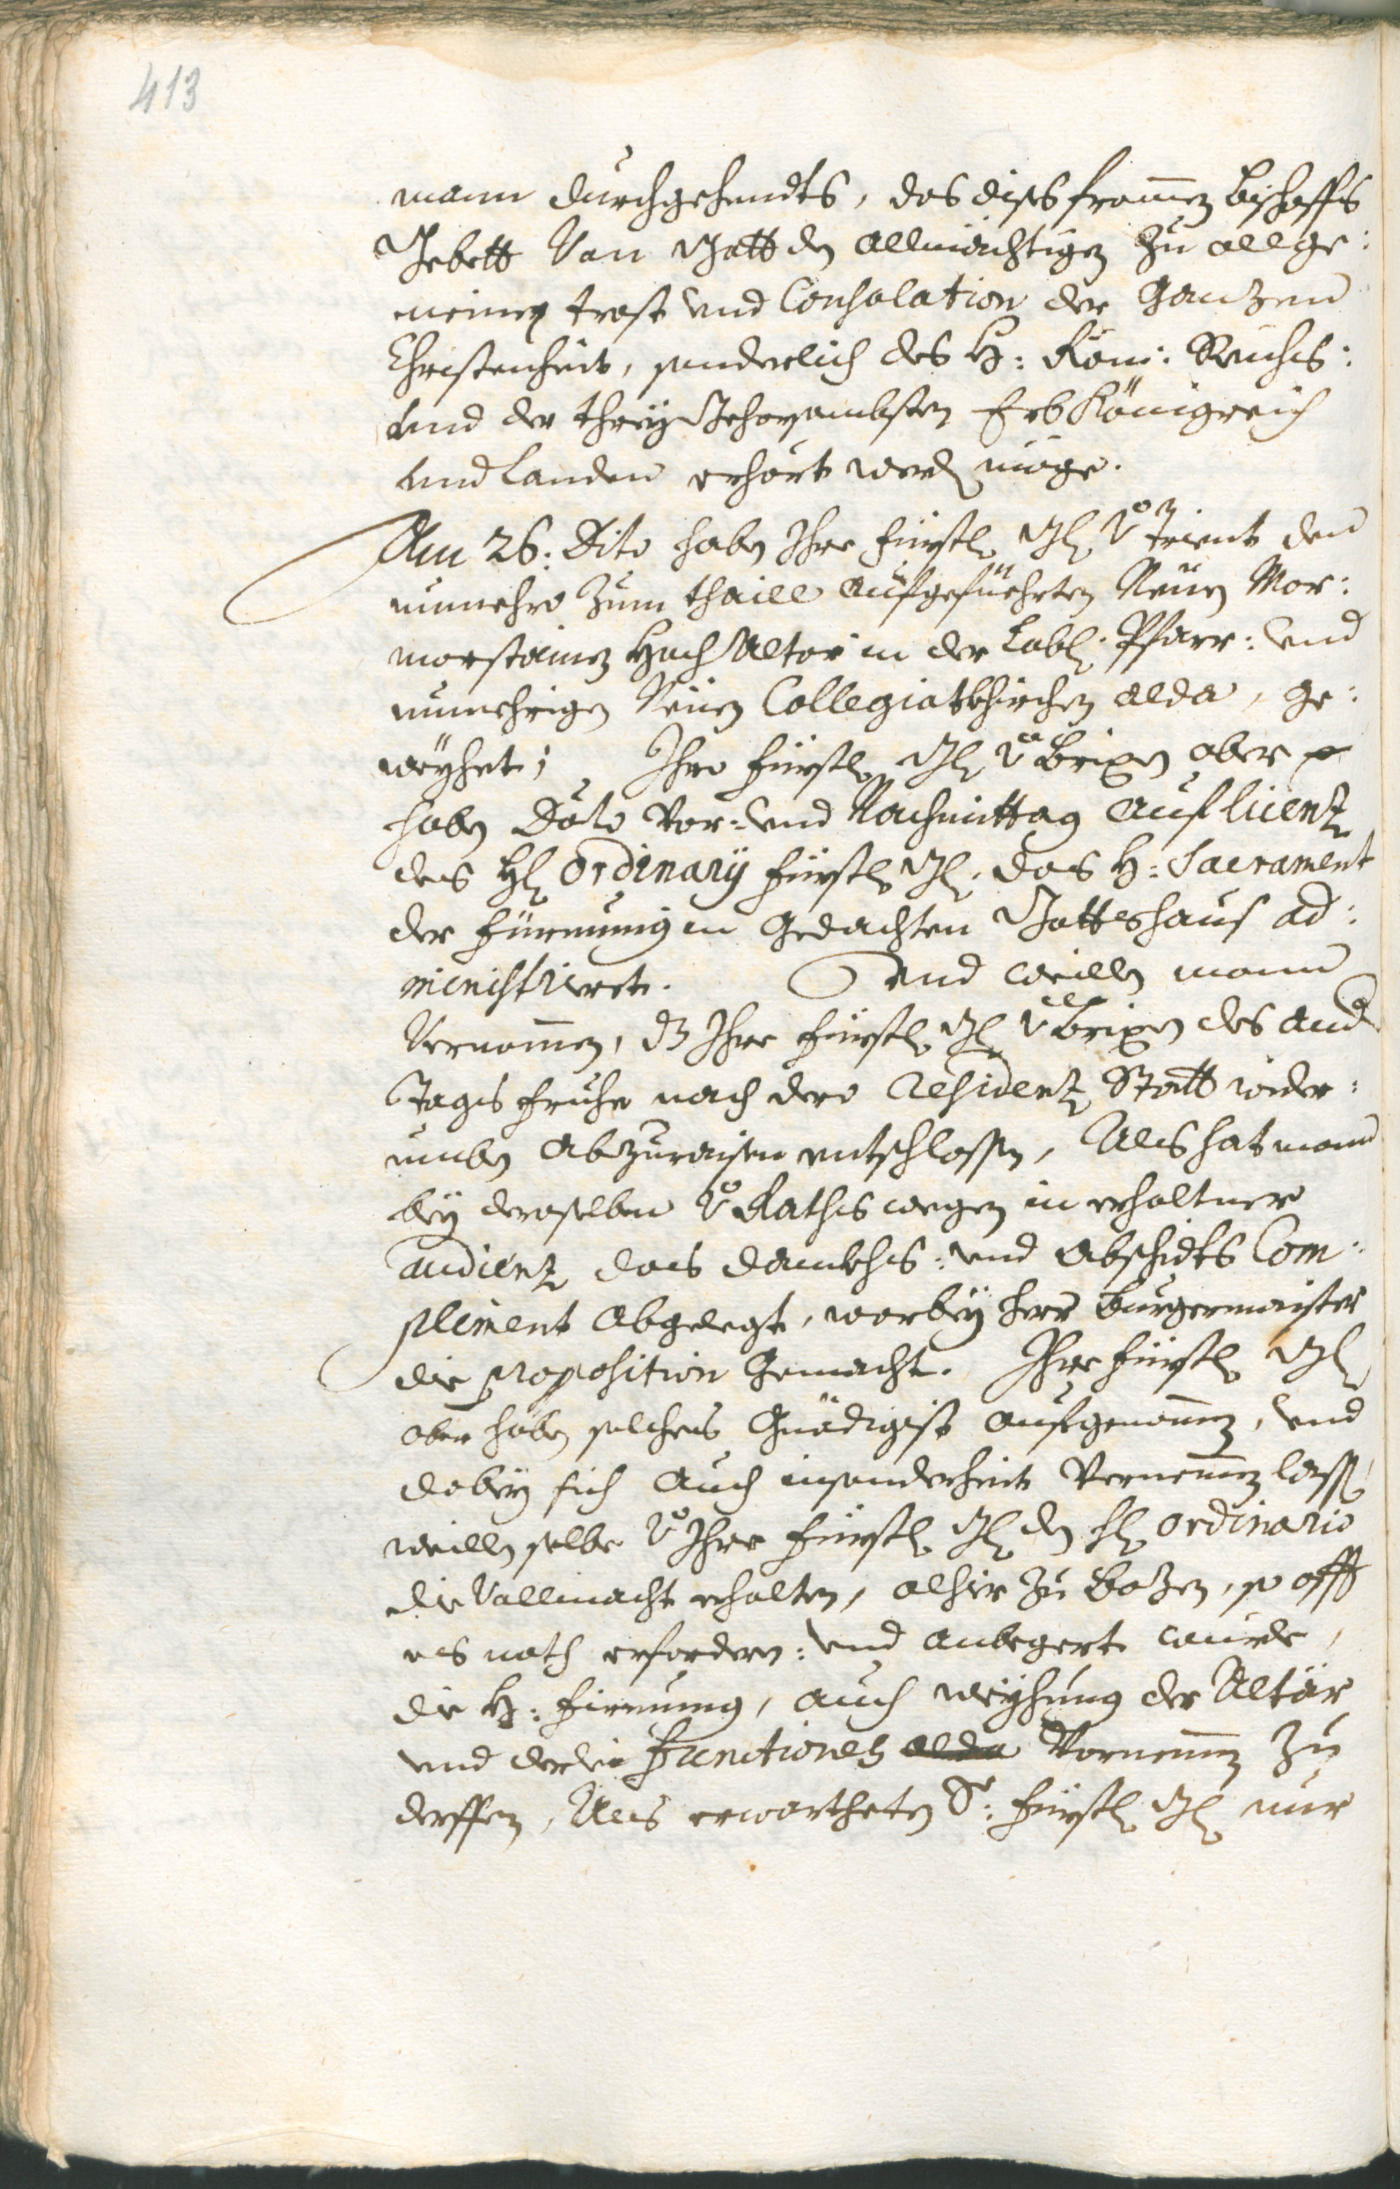 413
mann durchgehendts, das dises from̄en Bischoffs
Gebett Von Gott den Allmächtigen zu allge:
meinen trost und Consolation der Ganzen
Christenheit, sonderlich des H: Röm: Reichs:
und der threy Gehorsambsten Erb Königreich
und Landen erhört werden möge.
Am 26: Dito haben Ihre Fürstl: Gl: v: Trient den
nunmehro zum thaill Aufgefüehrten Neuen Mar:
morstainen Hoch Altar in der Löbl: Pfarr: und
nunmehrigen Neuen Collegiatkhirchen alda, ge:
weÿhet; Ihro Fürstl: Gl: v: Brixen aber
haben Dato Vor: und Nachmittag auf licenz
des Hl: Ordinarÿ Fürstl: Gl: das H: Sacrament
der Fürmung in Gedachten Gottshaus ad:
ministrieret. Und weillen mann
Vernom̄en, dz Ihre Fürstl: Gl: v: Brixen des and
Tags fruhe nach dero Residenz Statt wider:
umben Abzuraisen entschlossen, Als hat mann
beÿ deroselben v: Raths wegen in erhaltner
audienz das dankhs: und Abschidts Com:
pliment Abgelegt, worbeÿ Herr Burgermaister
die proposition Gemacht. Ihre Fürstl: Gl:
aber haben solches Gnädigist aufgenom̄en, und
dabeÿ sich Auch insonderheit Vernem̄en lassen
weillen selbe v: Ihre Fürstl: Gl: den Hl: ordinario
die Vollmacht erhalten, alhier zu Bozen, so offt
es noth erfordern: und anbegert wurde,
die H: Firmung, auch weÿhung der Altär
und derlei Functiones alda Vornem̄en zu
derffen, Als erwartheten Sr: Fürstl: Gl: nur